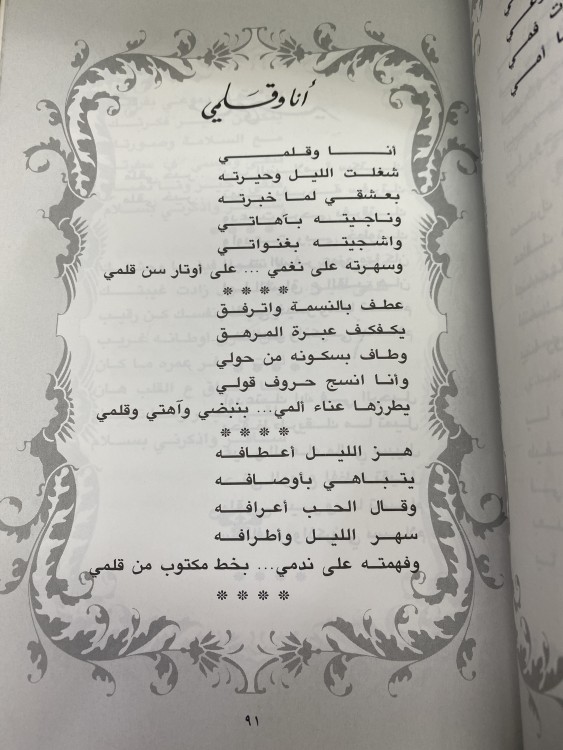 أنا وقلمي
أنا وقلمي
شغلت الليل وحيرته
بعشقي لما خبرته
وناجيته بآهاتي
واشجيته بغنواتي
وسهرته على نغمي ... على أوتار سن قلمي
****
عطف بالنسمة واترفق
يكفكف عبرة المرهق
وطاف بسكونه من حولي
وأنا انسج حروف قولي
يطرزها عناء ألمي... بنبضي وآهتي وقلمي
****
هز الليل أعطافه
يتباهي بأوصافه
وقال الحب أعرافه
سهر الليل وأطرافه
وفهمته على ندمي... بخط مكتوب من قلمي
****
٩١